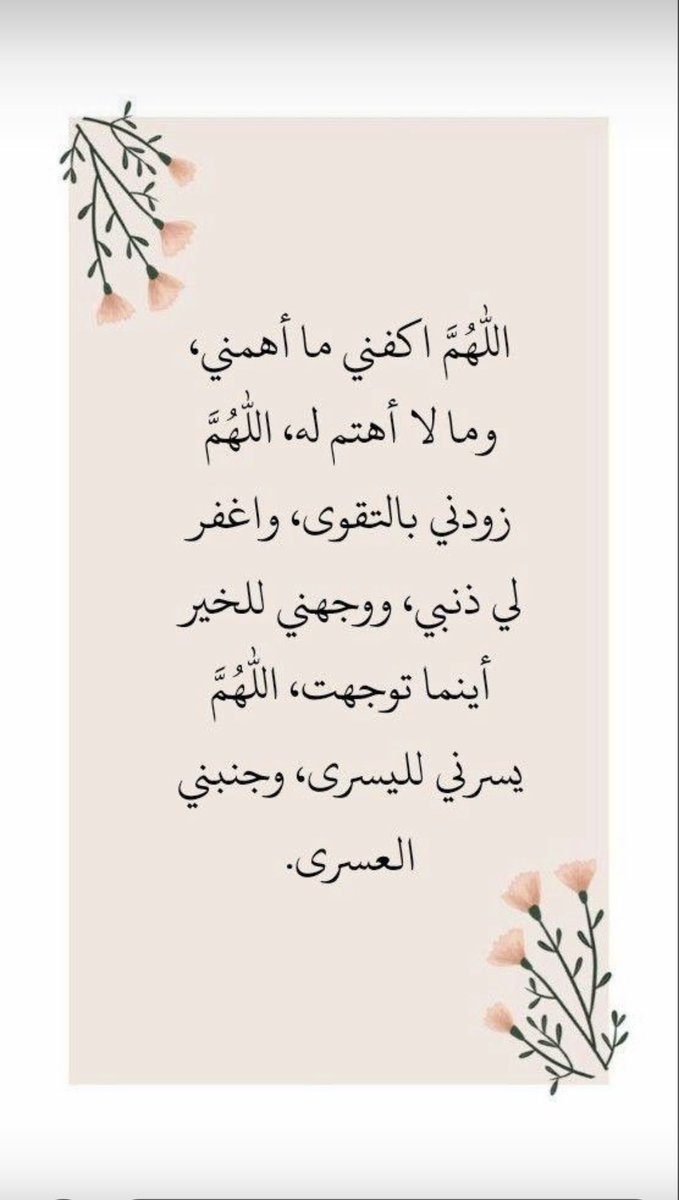 اللَّهُمَّ اكفني ما أهمني،
وما لا أهتم له، اللَّهُمَّ
زودني بالتقوى، واغفر
لي ذنبي، ووجهني للخير
أينما توجهت، اللَّهُمَّ
يسرني لليسرى، وجنبني
العسرى.